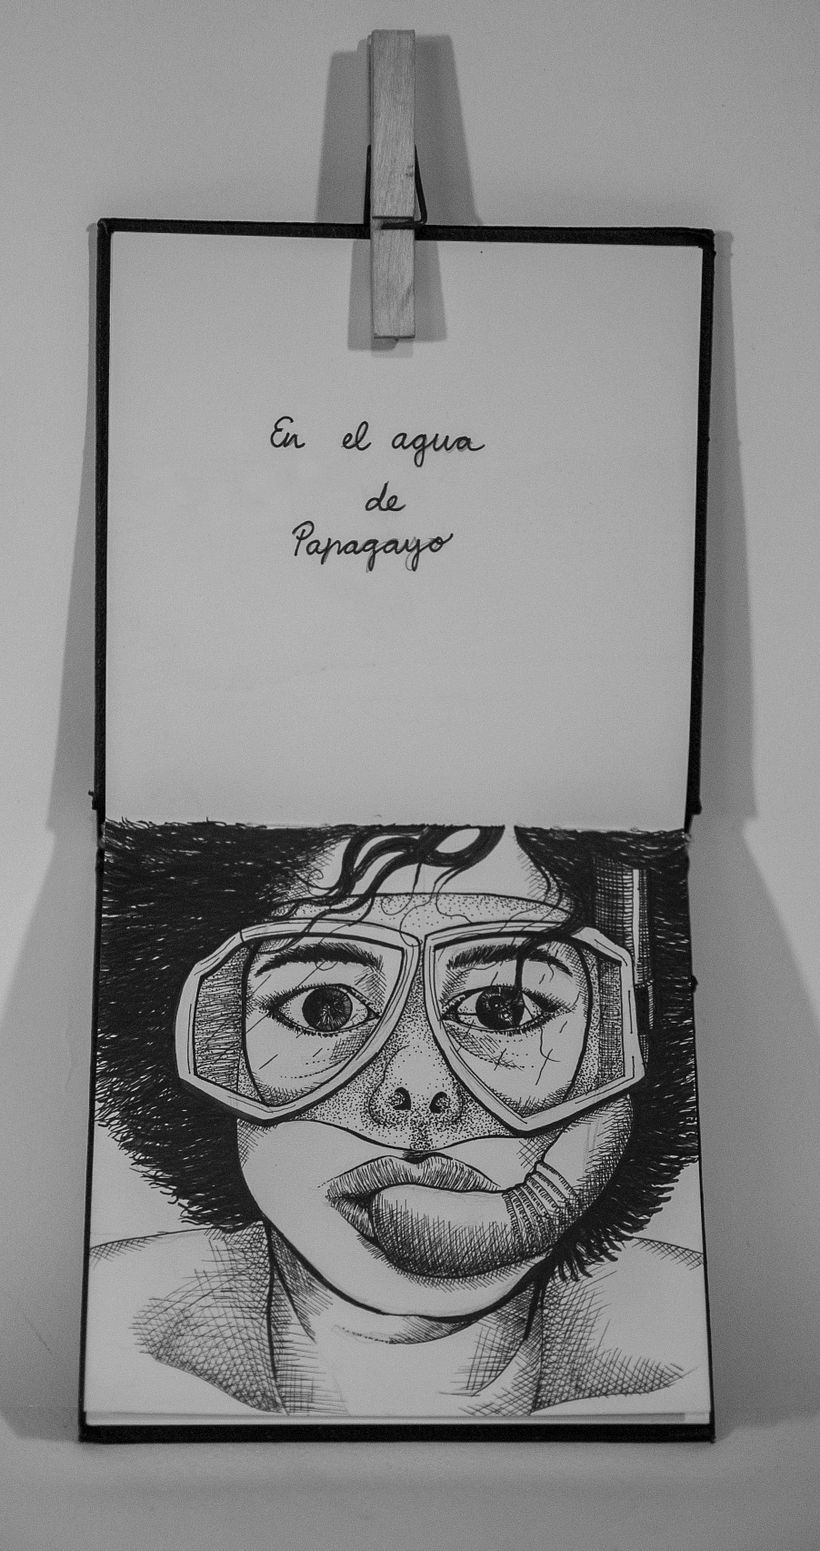 En el agua
de
Papagayo